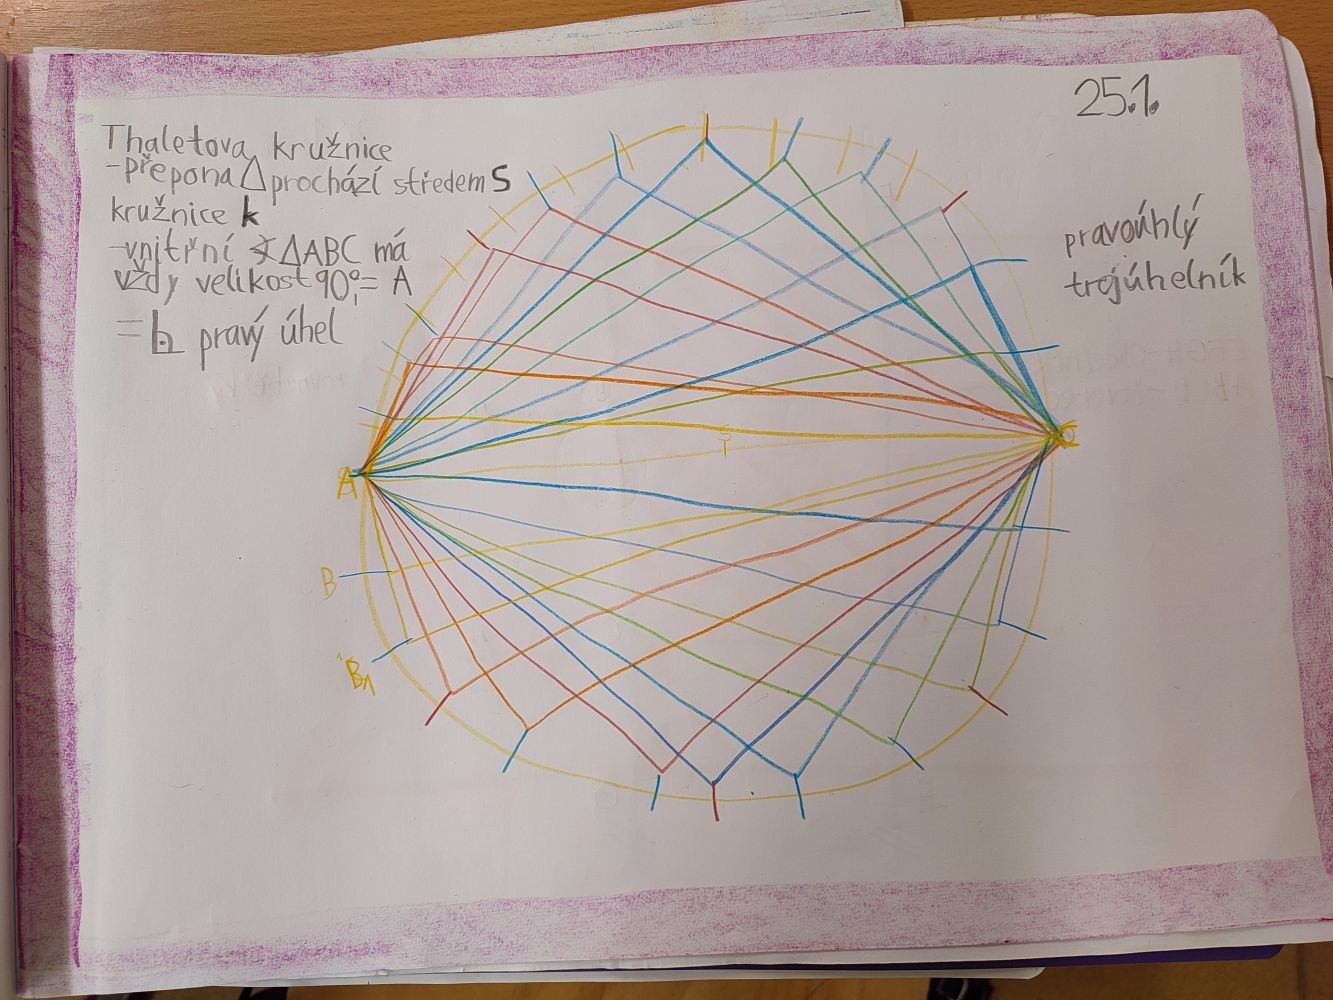 25.1.
Thaletova kružnice
-přepona △ prochází středem S
kružnice k
-vnitřní ∢ △ABC má
vždy velikost 90°, = A
= pravý úhel
pravoúhlý
trojúhelník
S
A
C
B
B₁